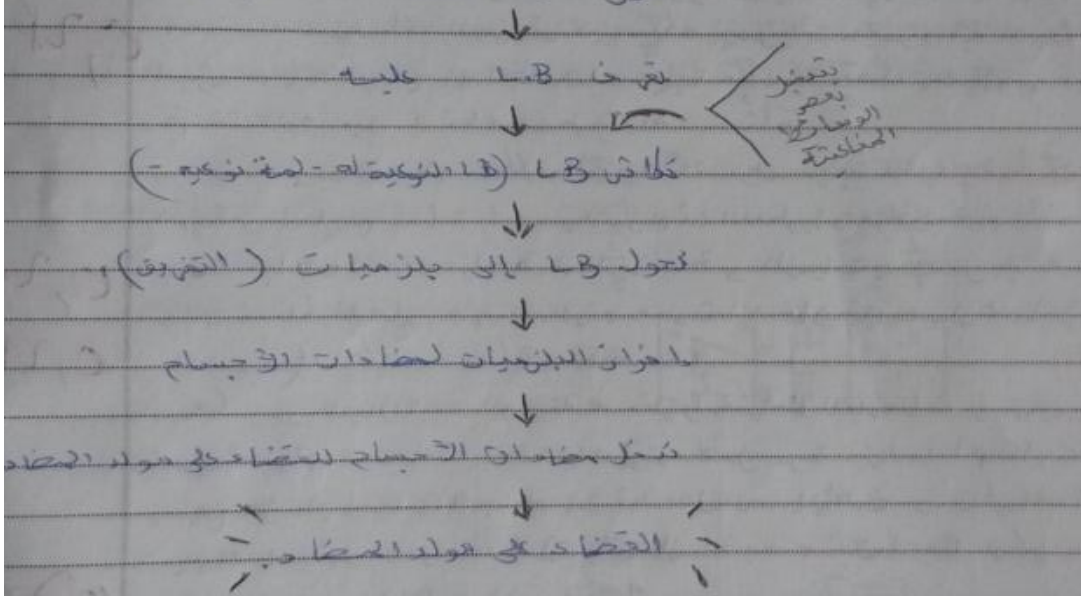 تعرف LB عليه
بتحفيز
بعض
المناعية
تكاثر LB (LB النوعية له - لمة نوعية -)
تحول LB إلى بلازميات (التفريق)
إفراز البلازميات لمضادات الأجسام
تدخل مضادات الأجسام للقضاء على مولد المضاد
القضاء على مولد المضاد.